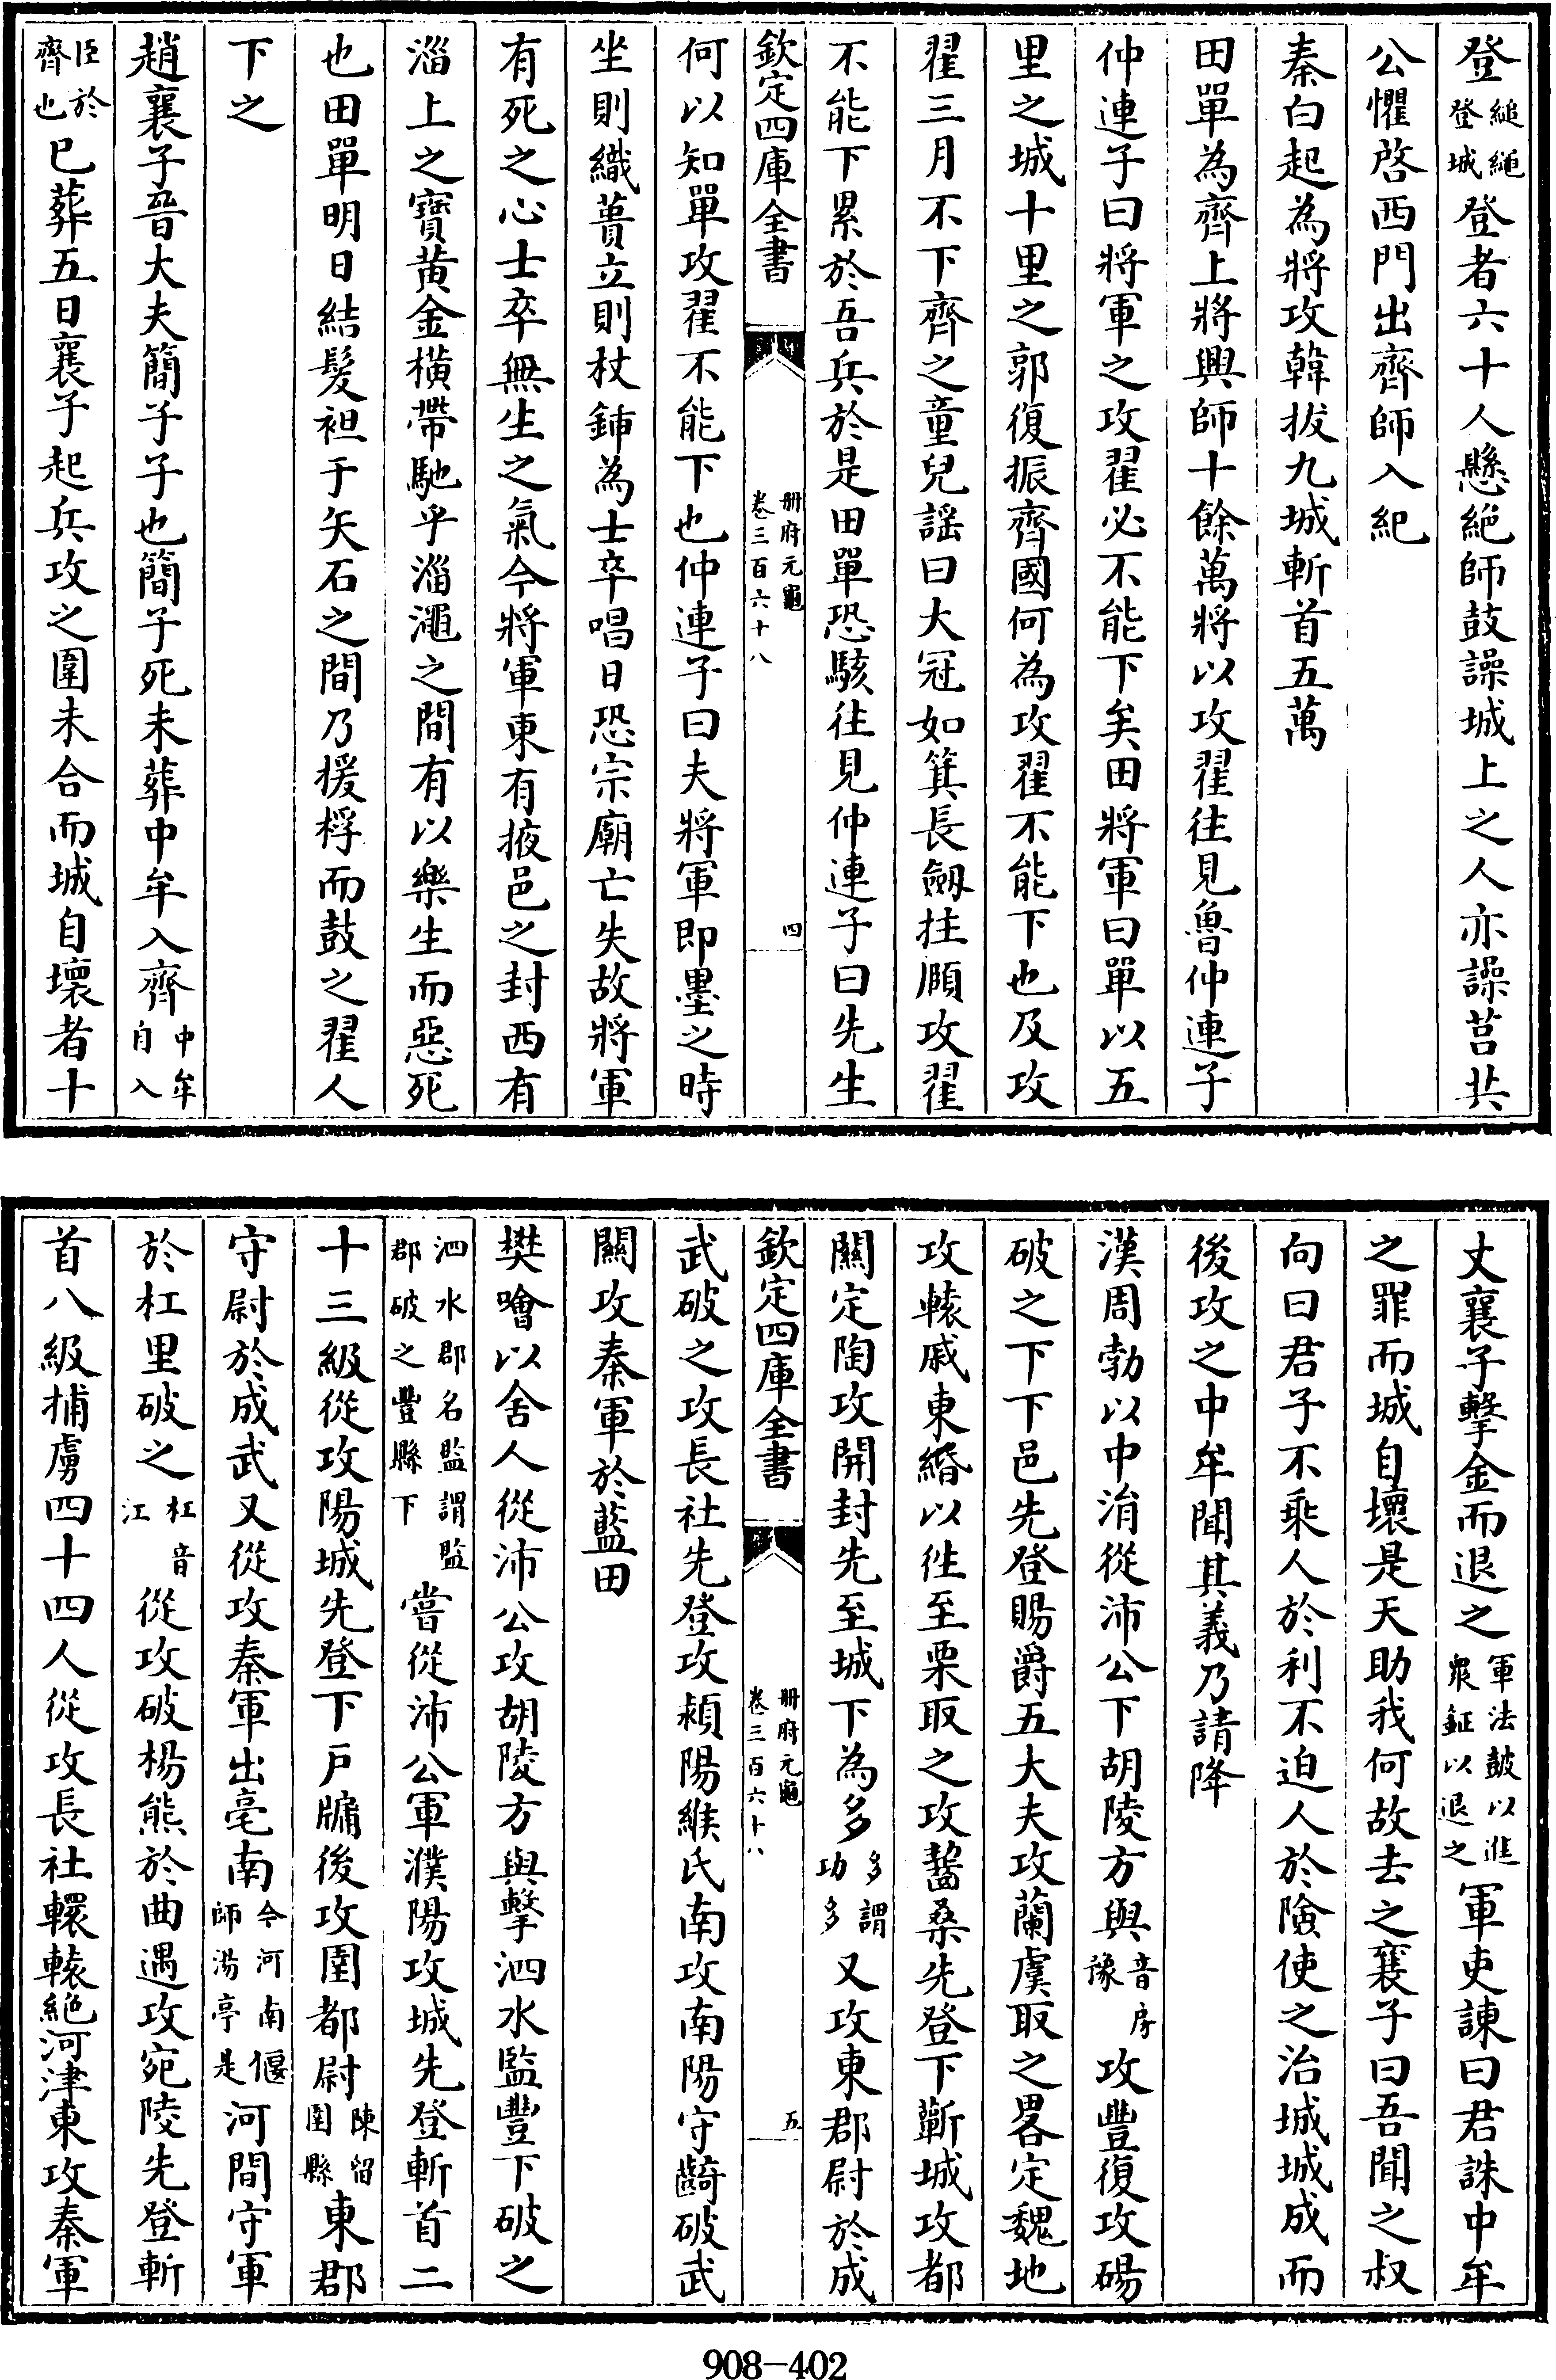 登縋繩登城登者六十人懸絶師鼓譟城上之人亦譟莒共
公懼啓西門出齊師入紀
秦白起為將攻韓拔九城斬首五萬
田單為齊上將興師十餘萬將以攻翟往見魯仲連子
仲連子曰將軍之攻翟必不能下矣田將軍曰單以五
里之城十里之郭復振齊國何為攻翟不能下也及攻
翟三月不下齊之童兒謡曰大冠如箕長劒拄頤攻翟
不能下累於吾兵於是田單恐駭往見仲連子曰先生
欽定四庫全書 冊府元龜卷三百六十八 四
何以知單攻翟不能下也仲連子曰夫將軍即墨之時
坐則織蕢立則杖鍤為士卒唱曰恐宗廟亡失故將軍
有死之心士卒無生之氣今將軍東有掖邑之封西有
淄上之寶黄金横帶馳乎淄澠之間有以樂生而惡死
也田單明日結髮袒于矢石之間乃援桴而鼓之翟人
下之
趙襄子晉大夫簡子子也簡子死未葬中牟入齊中牟自入
臣於齊也已葬五日襄子起兵攻之圍未合而城自壞者十
丈襄子擊金而退之軍法鼓以進衆鉦以退之軍吏諫曰君誅中牟
之罪而城自壞是天助我何故去之襄子曰吾聞之叔
向曰君子不乘人於利不迫人於險使之治城城成而
後攻之中牟聞其義乃請降
漢周勃以中涓從沛公下胡陵方與音房豫攻豐復攻碭
破之下下邑先登賜爵五大夫攻蘭虞取之畧定魏地
攻轅戚東緡以徃至栗取之攻齧桑先登下蘄城攻都
關定陶攻開封先至城下為多多謂功多又攻東郡尉於成
欽定四庫全書 冊府元龜卷三百六十八 五
武破之攻長社先登攻潁陽緱氏南攻南陽守齮破武
關攻秦軍於藍田
樊噲以舍人從沛公攻胡陵方與擊泗水監豐下破之
泗水郡名監謂監郡破之豐縣下嘗從沛公軍濮陽攻城先登斬首二
十三級從攻陽城先登下戶牖後攻圉都尉陳留圉縣東郡
守尉於成武又從攻秦軍出亳南今河南偃師湯亭是河間守軍
於杠里破之杠音江從攻破楊熊於曲遇攻宛陵先登斬
首八級捕虜四十四人從攻長社轘轅絶河津東攻秦軍
908-402